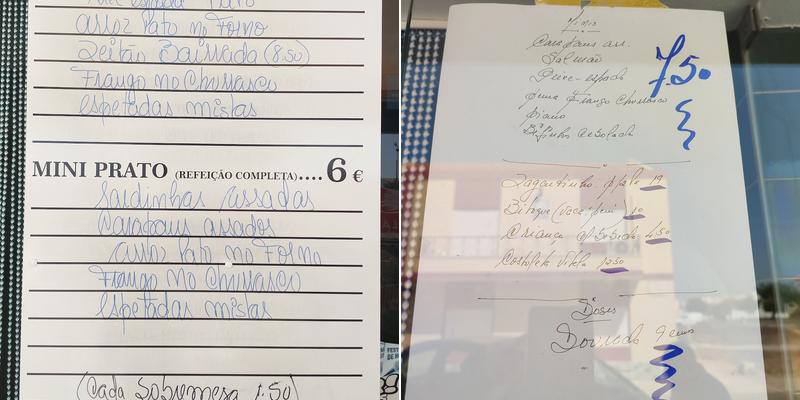 Arroz Pato no Forno
Leitão Bairrada (8.50)
Frango no Churrasco
espetadas mistas
MINI PRATO (REFEIÇÃO COMPLETA)....6 €
Sardinhas assadas
Carapaus assados
Arroz Pato no Forno
Frango no Churrasco
espetadas mistas
(Cada Sobremesa 1.50)
Minis
Carapaus ass.
Salmão
Peixe-espada
perna Frango Churrasco
piano
750
Lagartinho
Bitoque (vaca/peru) 10
Criança
Costeleta vitela 1250
Doses
Dourada 9 euros